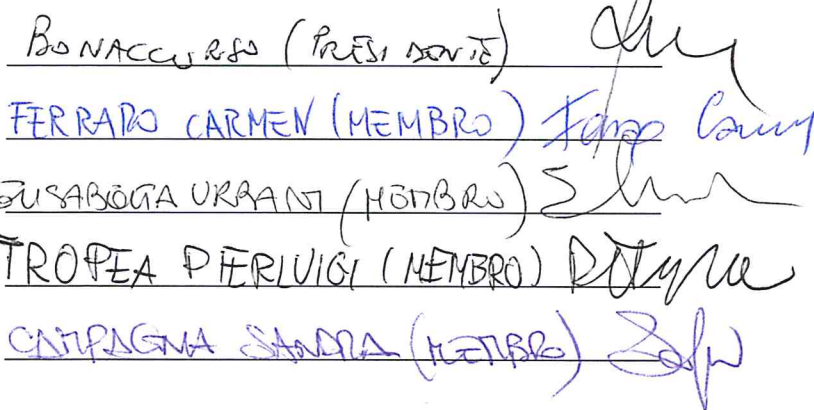 BONACCURSO (PRESIDENTE)
FERRARO CARMEN (MEMBRO) Carmen
ELISABETTA URBANI (MEMBRO)
TROPEA PIERLUIGI (MEMBRO)
CAMPAGNA SANDRA (MEMBRO)